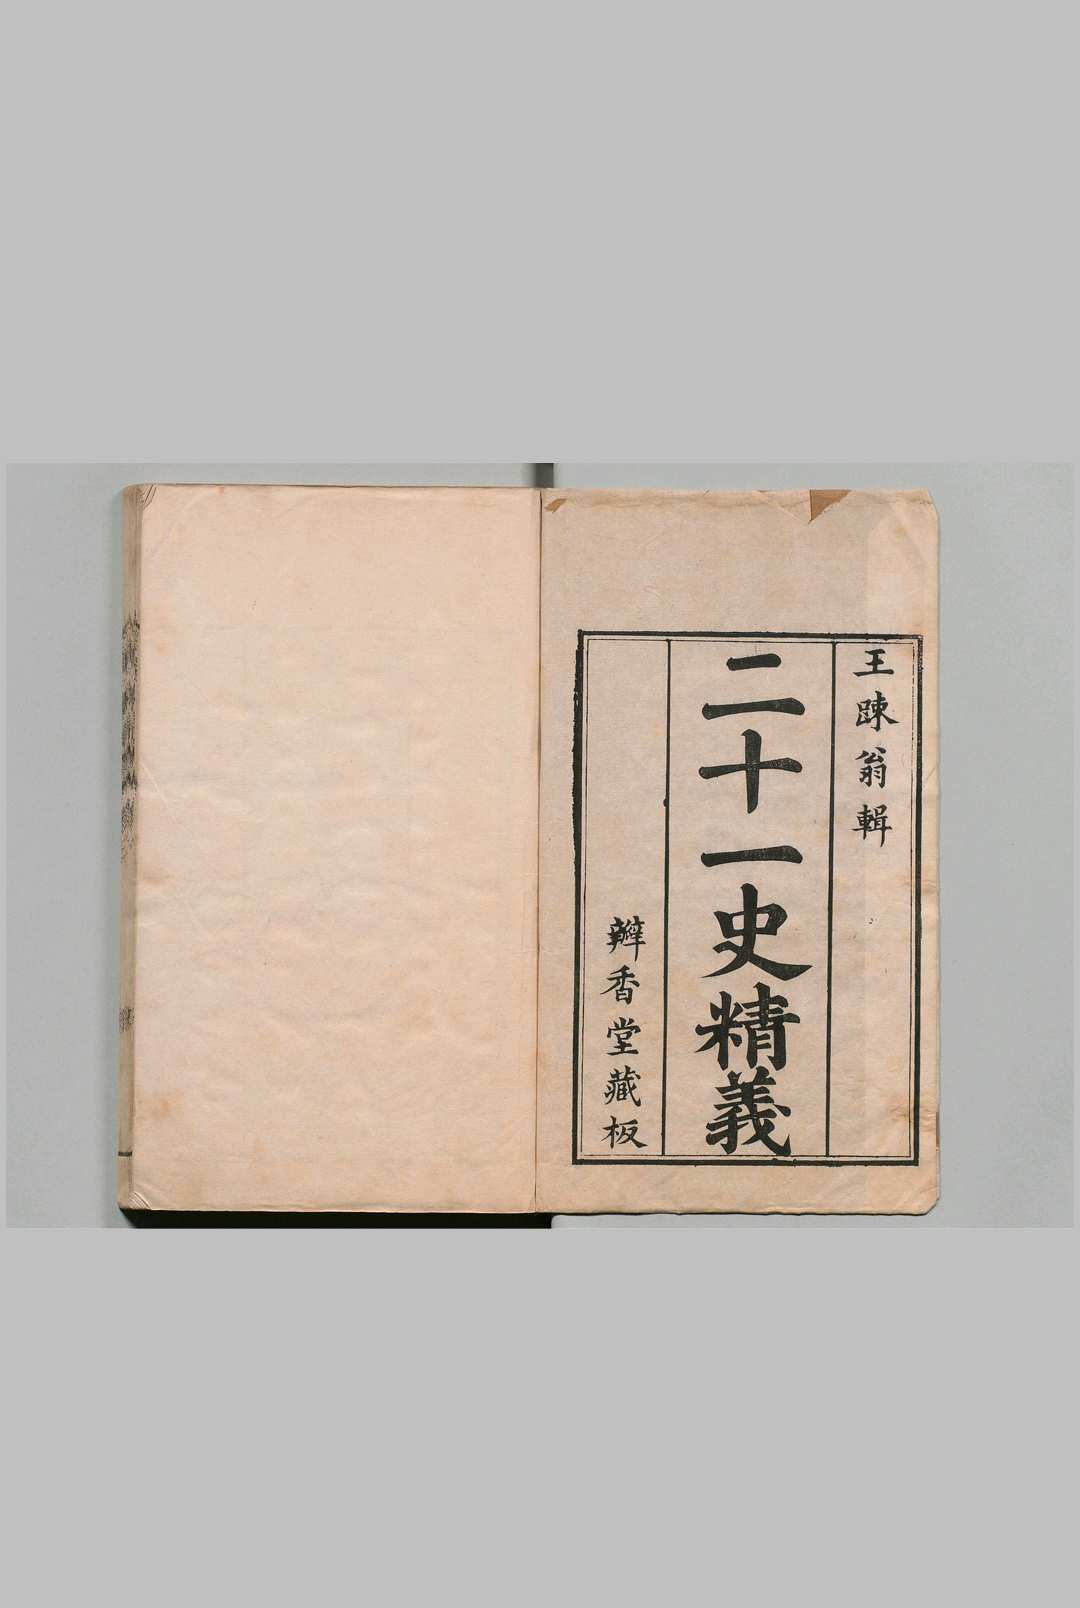 王踈翁輯
二十一史精義
瓣香堂藏板